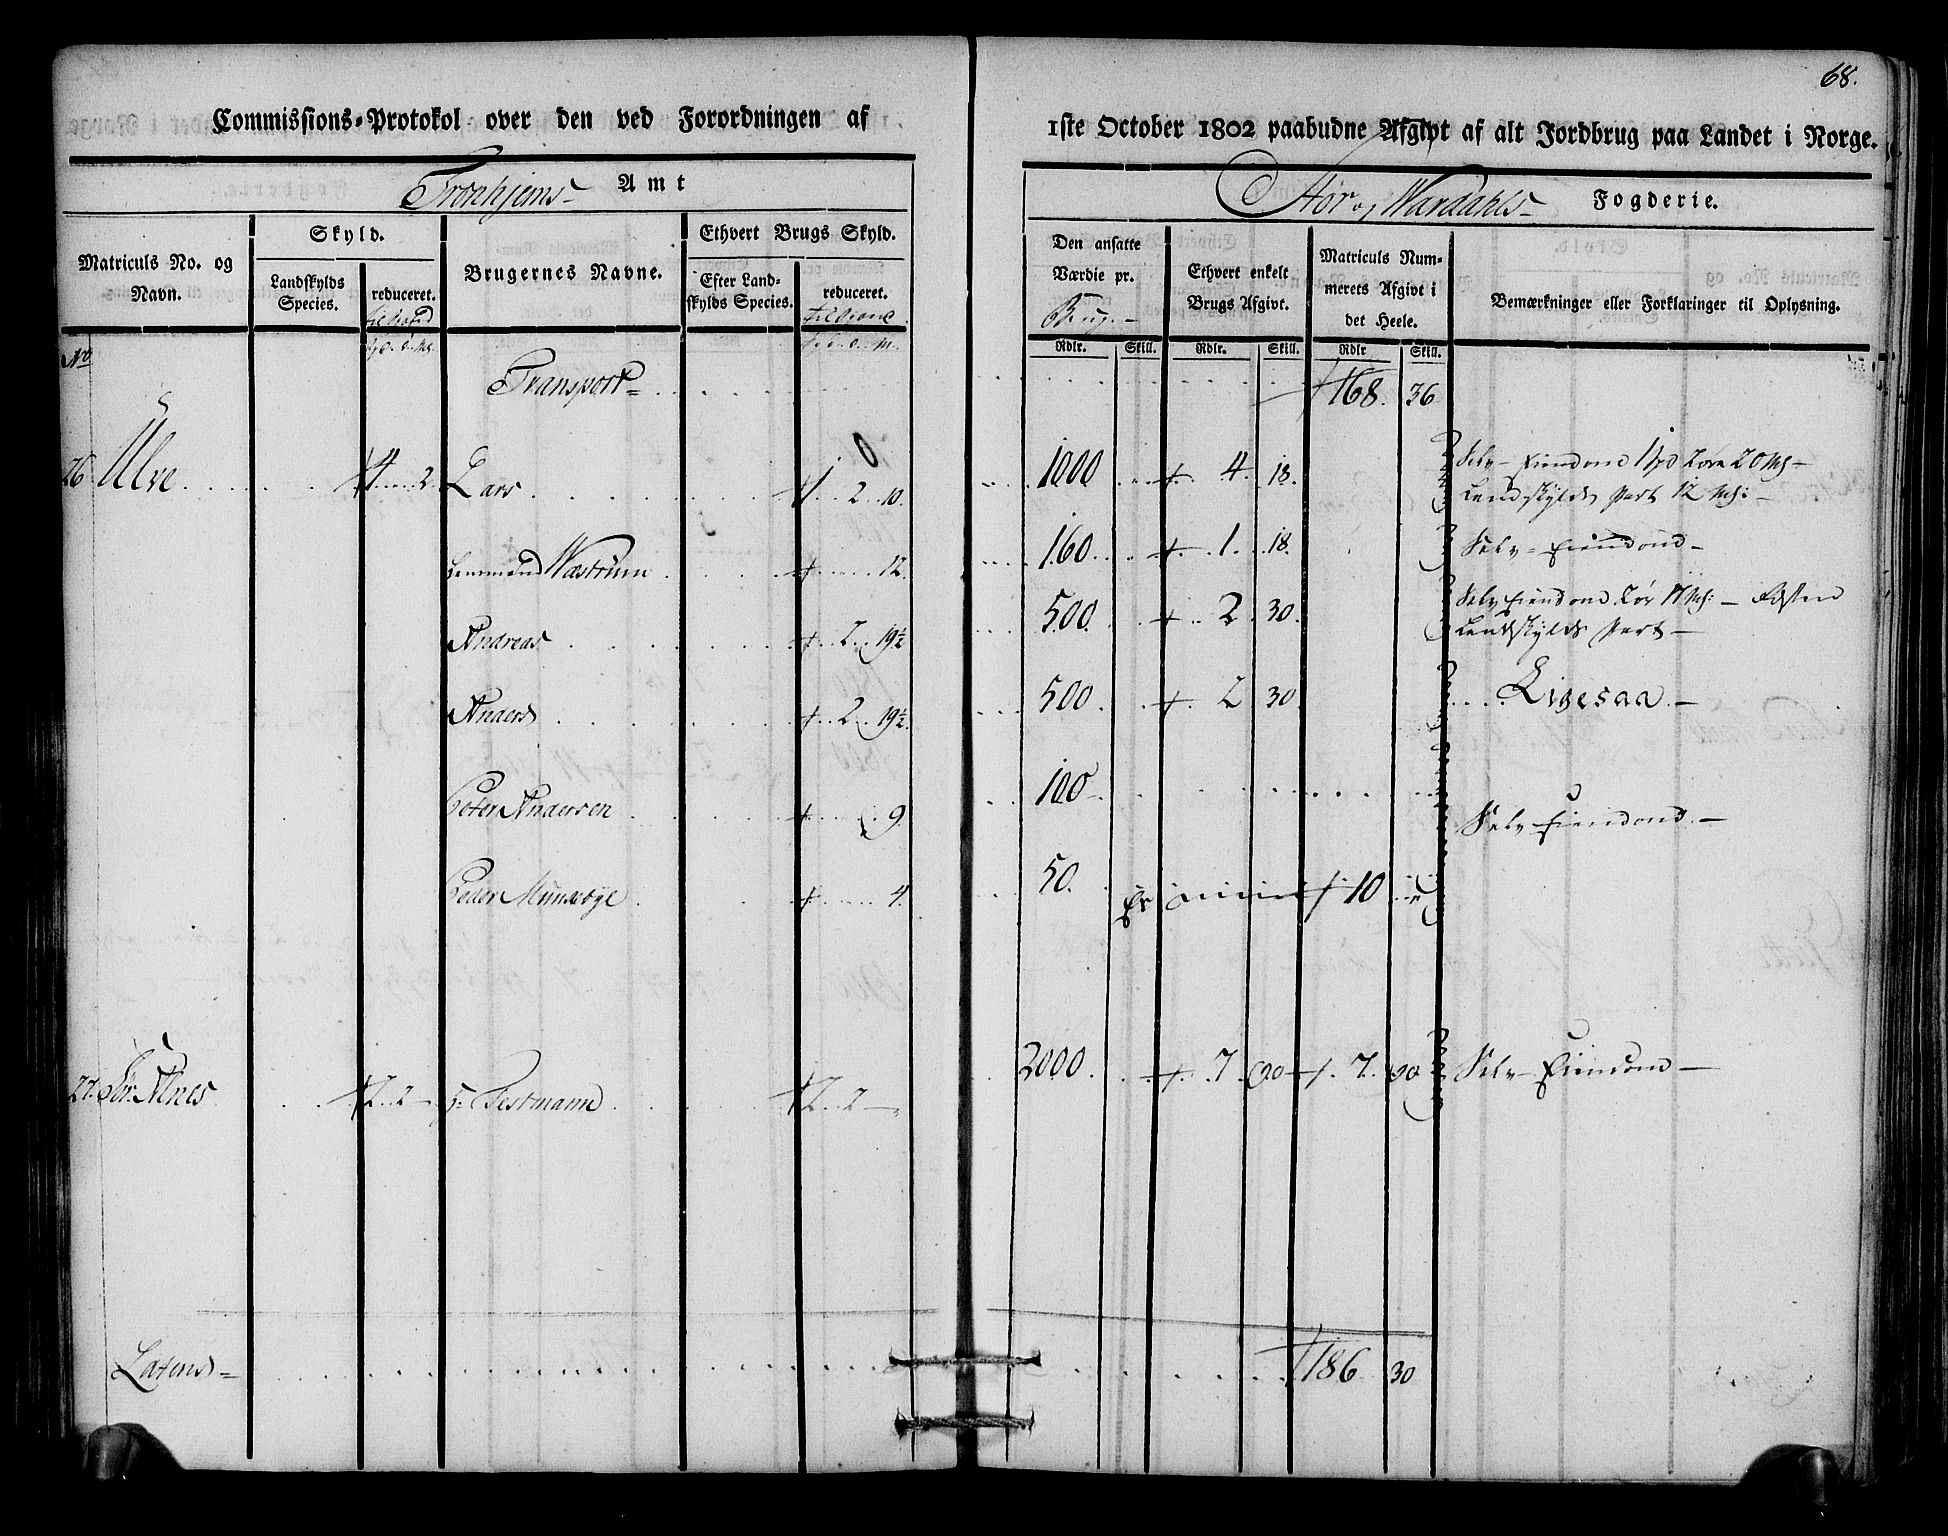 68.
Commissions-Protokol over den ved Forordningen af 1ste October 1802 paabudne Afgivt af alt Jordbrug paa Landet i Norge.
Tronhjems- Amt
Stør og Wærdahls- Fogderie.
Matriculs No. og Navn.
Skyld.
Landskylds Species.
reduceret.
Brugernes Navne.
Ethvert Brugs Skyld.
Efter Landskylds Species.
reduceret.
Den ansatte Værdie pr. Brug.-
Ethvert enkelt Brugs Afgivt.
Matriculs Nummerets Afgivt i det Heele.
Bemærkninger eller Forklaringer til Oplysning.
Rdlr. Skill. Rdlr. Skill. Rdlr Skill.
No
Transport= 168. 36
26 Ulve 4 2 Lars 1 2 10. 1000 4 18. Selv-Eiendond 1 Spd Lore 20 Mrk-
Landskylds Part 12 Mrk: -
Lenmand Wæstrum 12. 160 1 18. Selv-Eiendond-
Andreas 2 19½ 500 2 30. Selv Eiendond Lør 17 Mrk: -
Landskylds Part-
Anders 2 19½ 500 2 30 Ligesaa-
Peter Andersen 9. 100 Selv-Eiendond-
Peder Munkrøye 4. 50. 10
27. Sør. Aines 2 2 - Hr Testmann 2 2 - 2000 7 90 7. 90 Selv-Eiendond-
Latens= 186 30